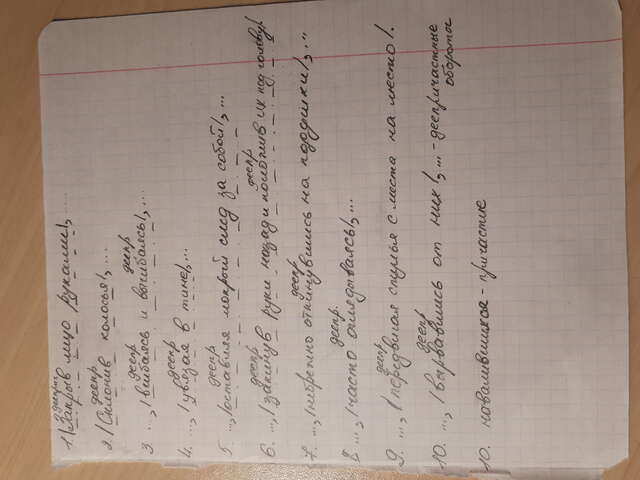 деепр
1) |Закрыв лицо руками|, ...
деепр
2. |Склонив колосья|, ...
деепр деепр
3 ..., |вгибаясь и выгибаясь|, ...
деепр
4. ..., |увязая в тине|, ...
деепр
5. ..., |оставляя мокрый след за собой|, ...
деепр деепр
6. ..., |закинув руки назад и положив их под голову|.
деепр
7. ..., |небрежно откинувшись на подушки|, ...
деепр.
8 ..., |часто оглядываясь|, ...
деепр
9. ..., |передвигая стулья с места на место|.
деепр
10. ..., |вырвавшись от них|, ... - деепричастные обороты
10. навалившихся - причастие